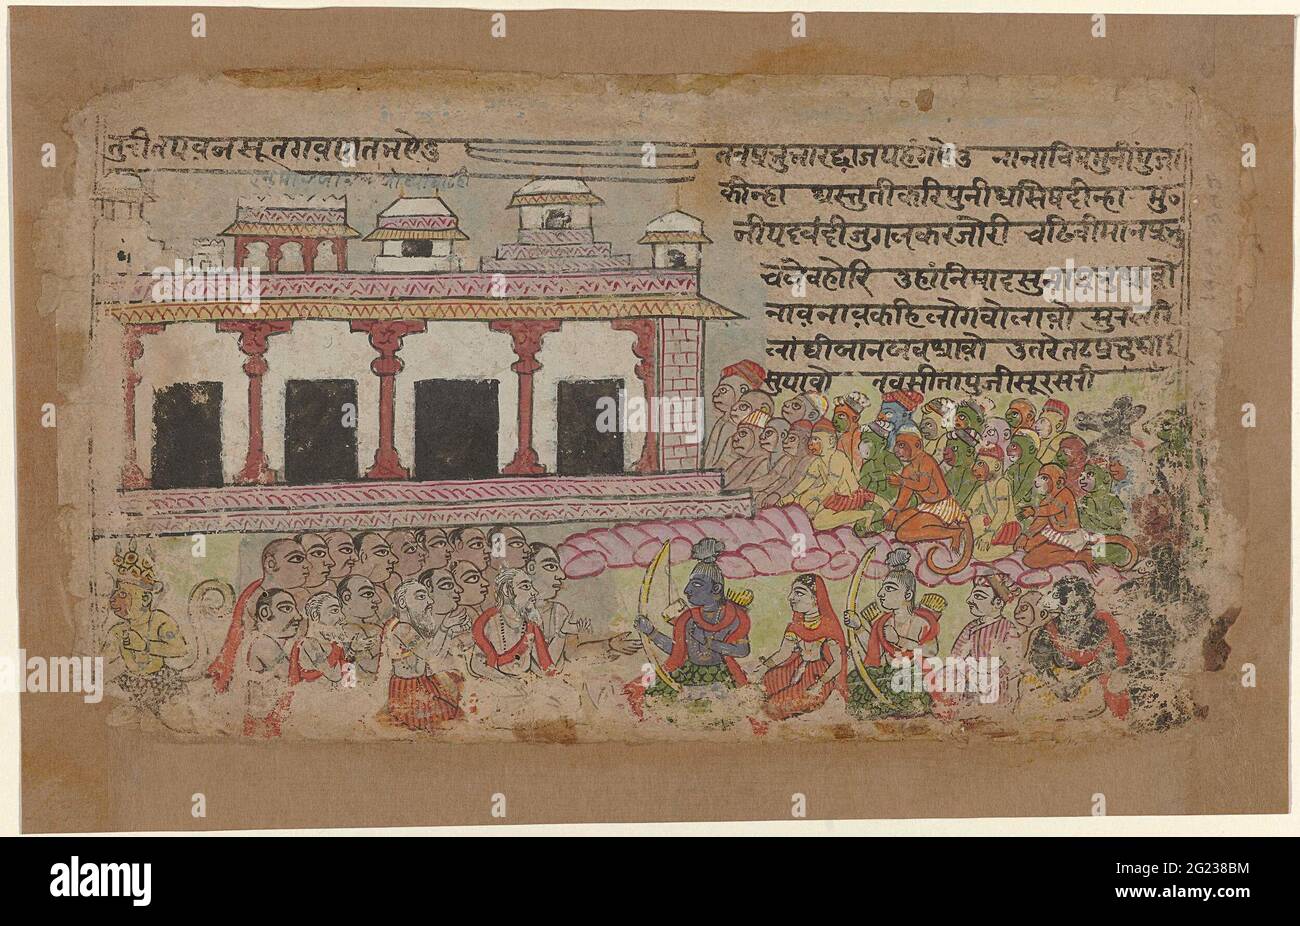 तुरीत पवन सूत गवण त भऐउ तब प्रभु भारद्वाज पहं गऐउ नाना विध मुनी पुजा
कीन्हा अस्तुती करि पुनी आसिष दीन्हा मु॰
नी पद वंदी जुगल कर जोरी चढि वीमान प्रभु
चले वहोरि उहां निषाद सुना प्रभु आवो
नाव नाव कहि लोग वोलावो सुरसरि
नाघी जान जब आवो उतरे तट प्रभु आइ
सु पावो तब सीता पुजी सूरसरी
alamy
Image ID: 2G238BM
www.alamy.com